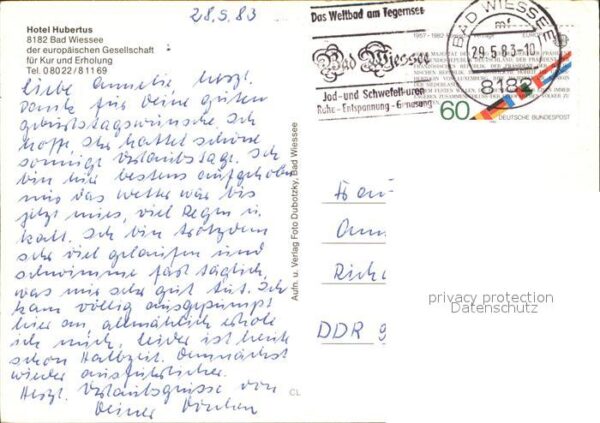 28.5.83
Hotel Hubertus
8182 Bad Wiessee
der europäischen Gesellschaft
für Kur und Erholung
Tel. 08022/81169
Liebe Annelie, herzl.
Dank für Deine guten
Geburtstagswünsche. Ich
hoffe, Ihr hattet schöne
sonnige Urlaubstage. Ich
bin hier bestens aufgehoben
nur das Wetter war bis
jetzt mies, viel Regen u.
kalt. Ich bin trotzdem
sehr viel gelaufen und
schwimme fast täglich,
was mir sehr gut tut. Ich
kam völlig ausgepumpt
hier an, allmählich erhole
ich mich, leider ist heute
schon Halbzeit. Demnächst
wieder ausführlicher.
Herzl. Urlaubsgrüsse von
Deiner
Aufn. u. Verlag Foto Dubotzky, Bad Wiessee
CL
Das Weltbad am Tegernsee
Bad Wiessee
Jod- und Schwefelfuren
Ruhe - Entspannung - Genesung
BAD WIESSEE
mf
29.5.83-10
8182
1957-1982
60
DEUTSCHE BUNDESPOST
Frau
Ann
Rich
DDR 9
privacy protection
Datenschutz